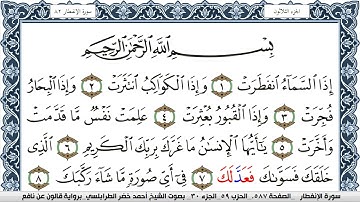 الجزء الثلاثون
سورة الإنفطار ٨٢
بِسْمِ اللَّهِ الرَّحْمَٰنِ الرَّحِيمِ
إِذَا السَّمَآءُ انفَطَرَتْ ١ وَإِذَا الْكَوَاكِبُ انتَثَرَتْ ٢ وَإِذَا الْبِحَارُ
فُجِّرَتْ ٣ وَإِذَا الْقُبُورُ بُعْثِرَتْ ٤ عَلِمَتْ نَفْسٌ مَّا قَدَّمَتْ
وَأَخَّرَتْ ٥ يَٰٓأَيُّهَا الْإِنسَٰنُ مَا غَرَّكَ بِرَبِّكَ الْكَرِيمِ ٦ الَّذِي
خَلَقَكَ فَسَوَّىٰكَ فَعَدَّلَكَ ٧ فِىٓ أَىِّ صُورَةٍ مَّا شَآءَ رَكَّبَكَ ٨
سورة الإنفطار . الصفحة ٥٨٧ . الحزب ٥٩ . الجزء ٣٠ . بصوت الشيخ أحمد خضر الطرابلسي . برواية قالون عن نافع